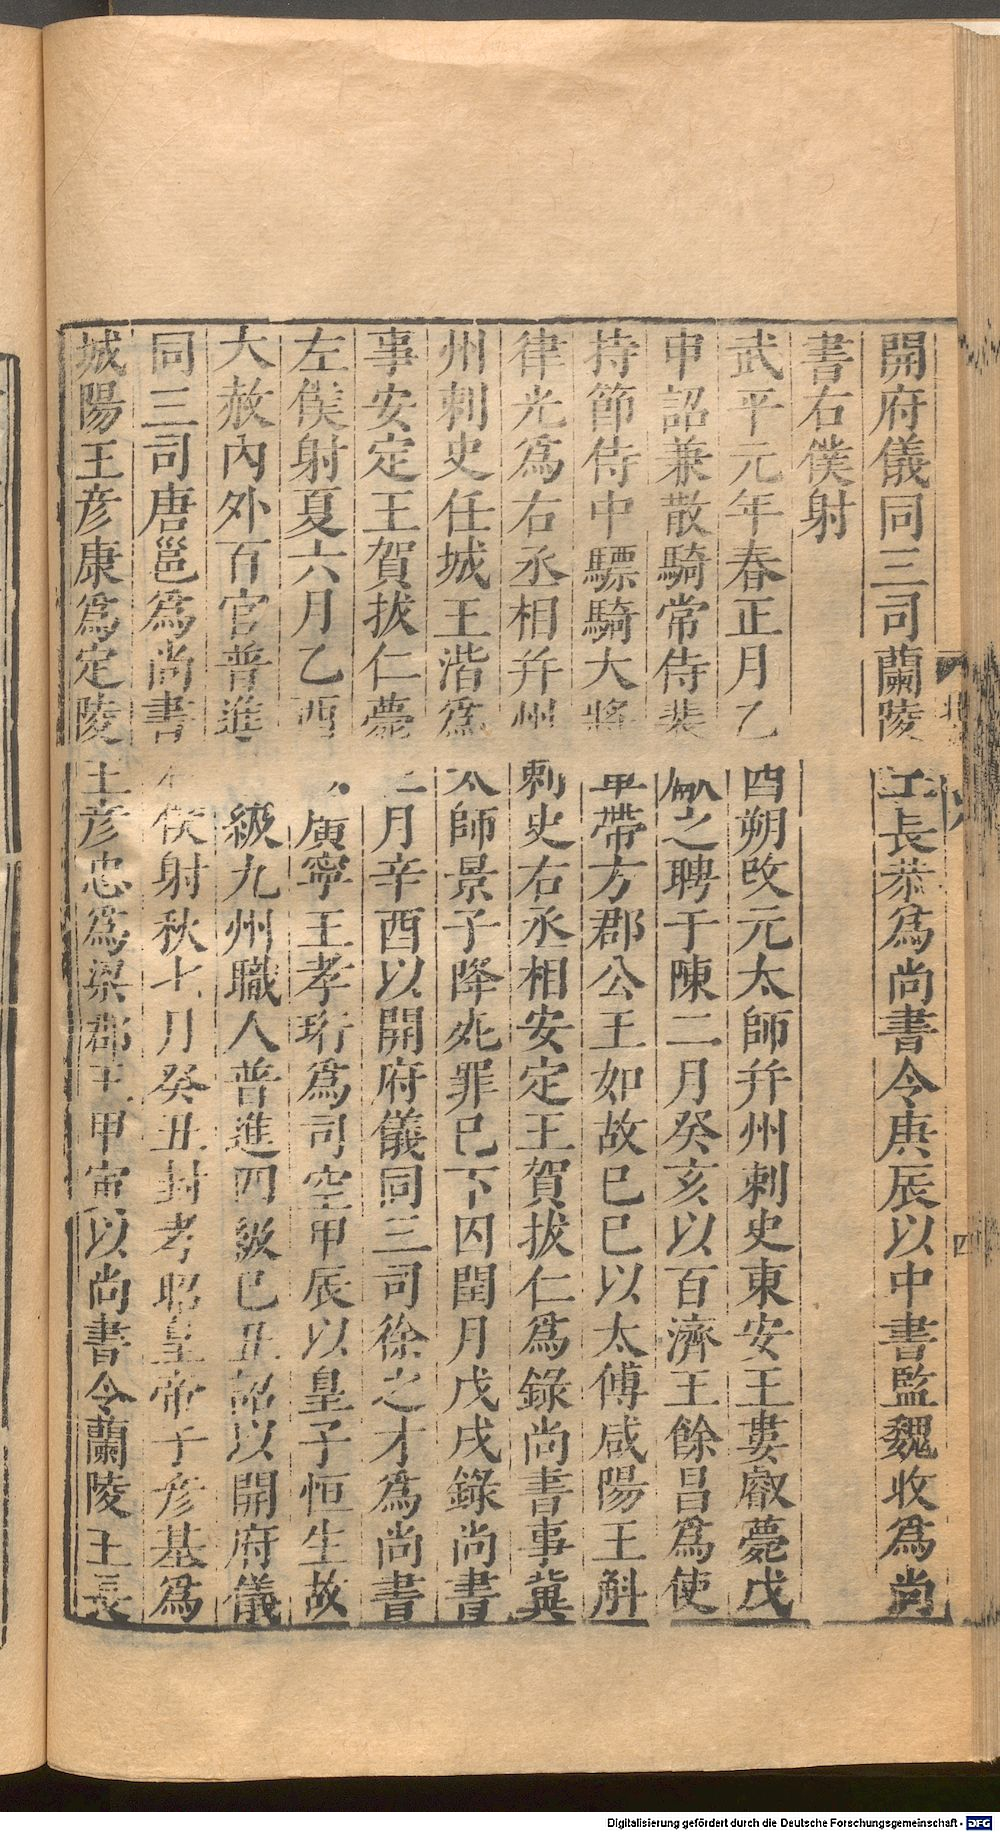 開府儀同三司蘭陵王長恭為尚書令庚辰以中書監魏收為尚
書右僕射
武平元年春正月乙酉朔改元太師并州刺史東安王婁叡薨戊
申詔兼散騎常侍裴之聘于陳二月癸亥以百濟王餘昌為使
持節侍中驃騎大將軍帶方郡公王如故已巳以太傅咸陽王斛
律光為右丞相并州刺史右丞相安定王賀拔仁為錄尚書事冀
州刺史任城王湝為太師景子降死罪已下囚閏月戊戌錄尚書
事安定王賀拔仁薨三月辛酉以開府儀同三司徐之才為尚書
左僕射夏六月乙酉以廣寧王孝珩為司空甲辰以皇子恒生故
大赦內外百官普進二級九州職人普進四級巳丑詔以開府儀
同三司唐邕為尚書右僕射秋七月癸丑封孝昭皇帝子彥基為
城陽王彥康為定陵王彥忠為梁郡王甲寅以尚書令蘭陵王長
四
Digitalisierung gefördert durch die Deutsche Forschungsgemeinschaft - DFG